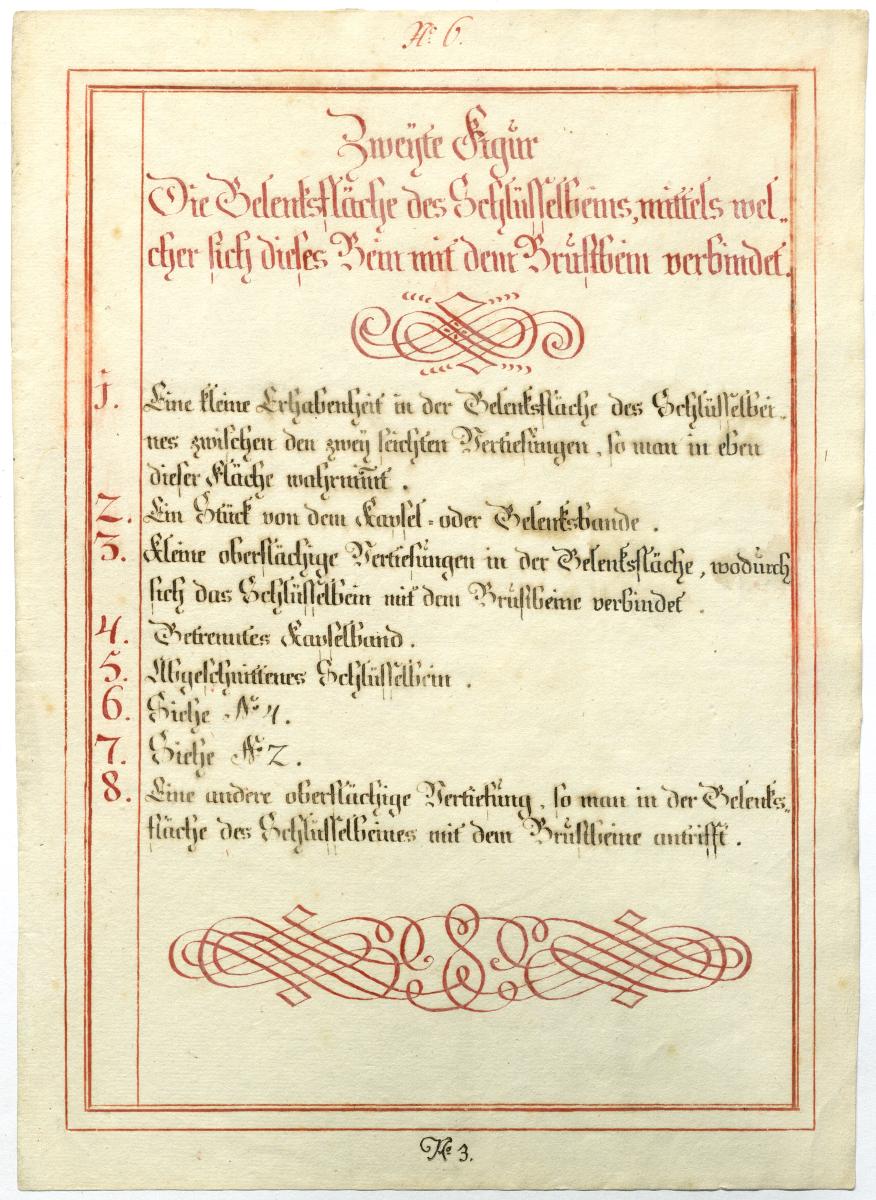 No. 6.
Zweyte Figur
Die Gelenksfläche des Schlüsselbeins, mittels wel„
cher sich dieses Bein mit dem Brustbein verbindet.
1. Eine kleine Erhabenheit in der Gelenksfläche des Schlüsselbei„
nes zwischen den zwey seichten Vertiefungen, so man in eben
dieser Fläche wahrnim̄t.
2. Ein Stück von dem Kapsel- oder Gelenksbande.
3. Kleine oberflächige Vertiefungen in der Gelenksfläche, wodurch
sich das Schlüsselbein mit dem Brustbeine verbindet.
4. Getrenntes Kapselband.
5. Abgeschnittenes Schlüsselbein.
6. Siehe No. 4.
7. Siehe No. 2.
8. Eine andere oberflächige Vertiefung, so man in der Gelenks„
fläche des Schlüsselbeines mit dem Brustbeine antrifft.
No. 3.